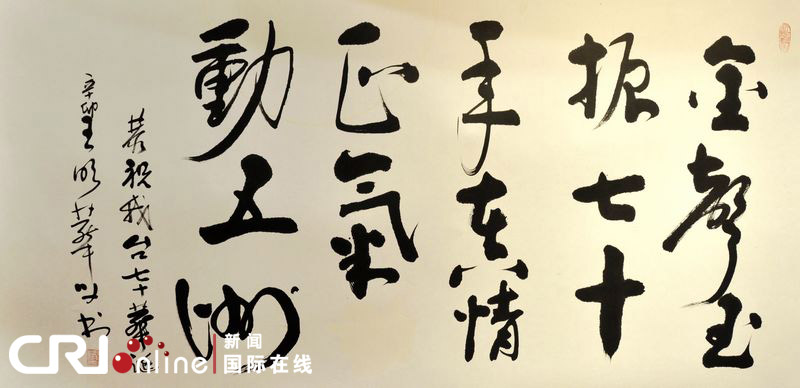 金聲玉
振七十
年真情
正氣
動五洲
恭祝我台七十華诞
辛卯王明華书
CRIonline 新闻
国际在线